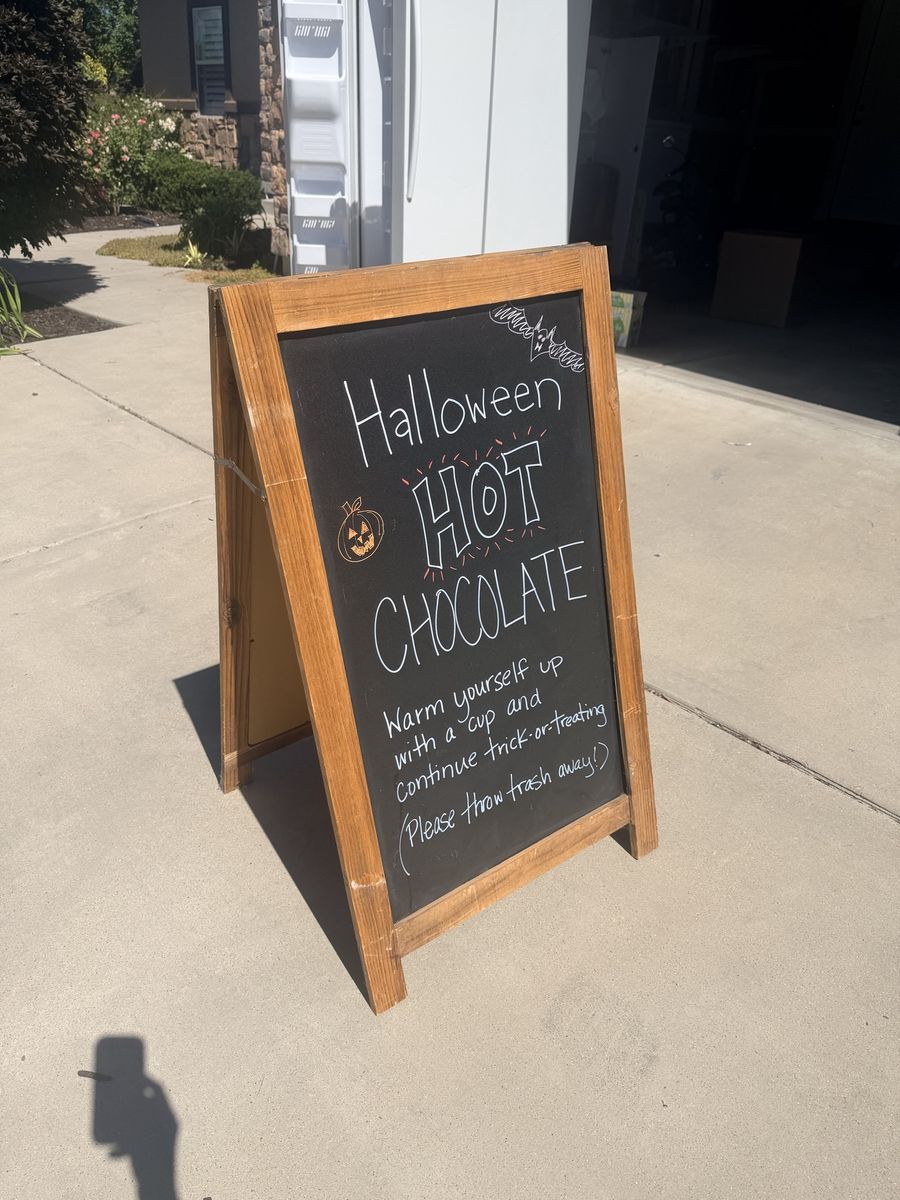 Halloween
HOT
CHOCOLATE
Warm yourself up
with a cup and
continue trick-or-treating
(Please throw trash away!)